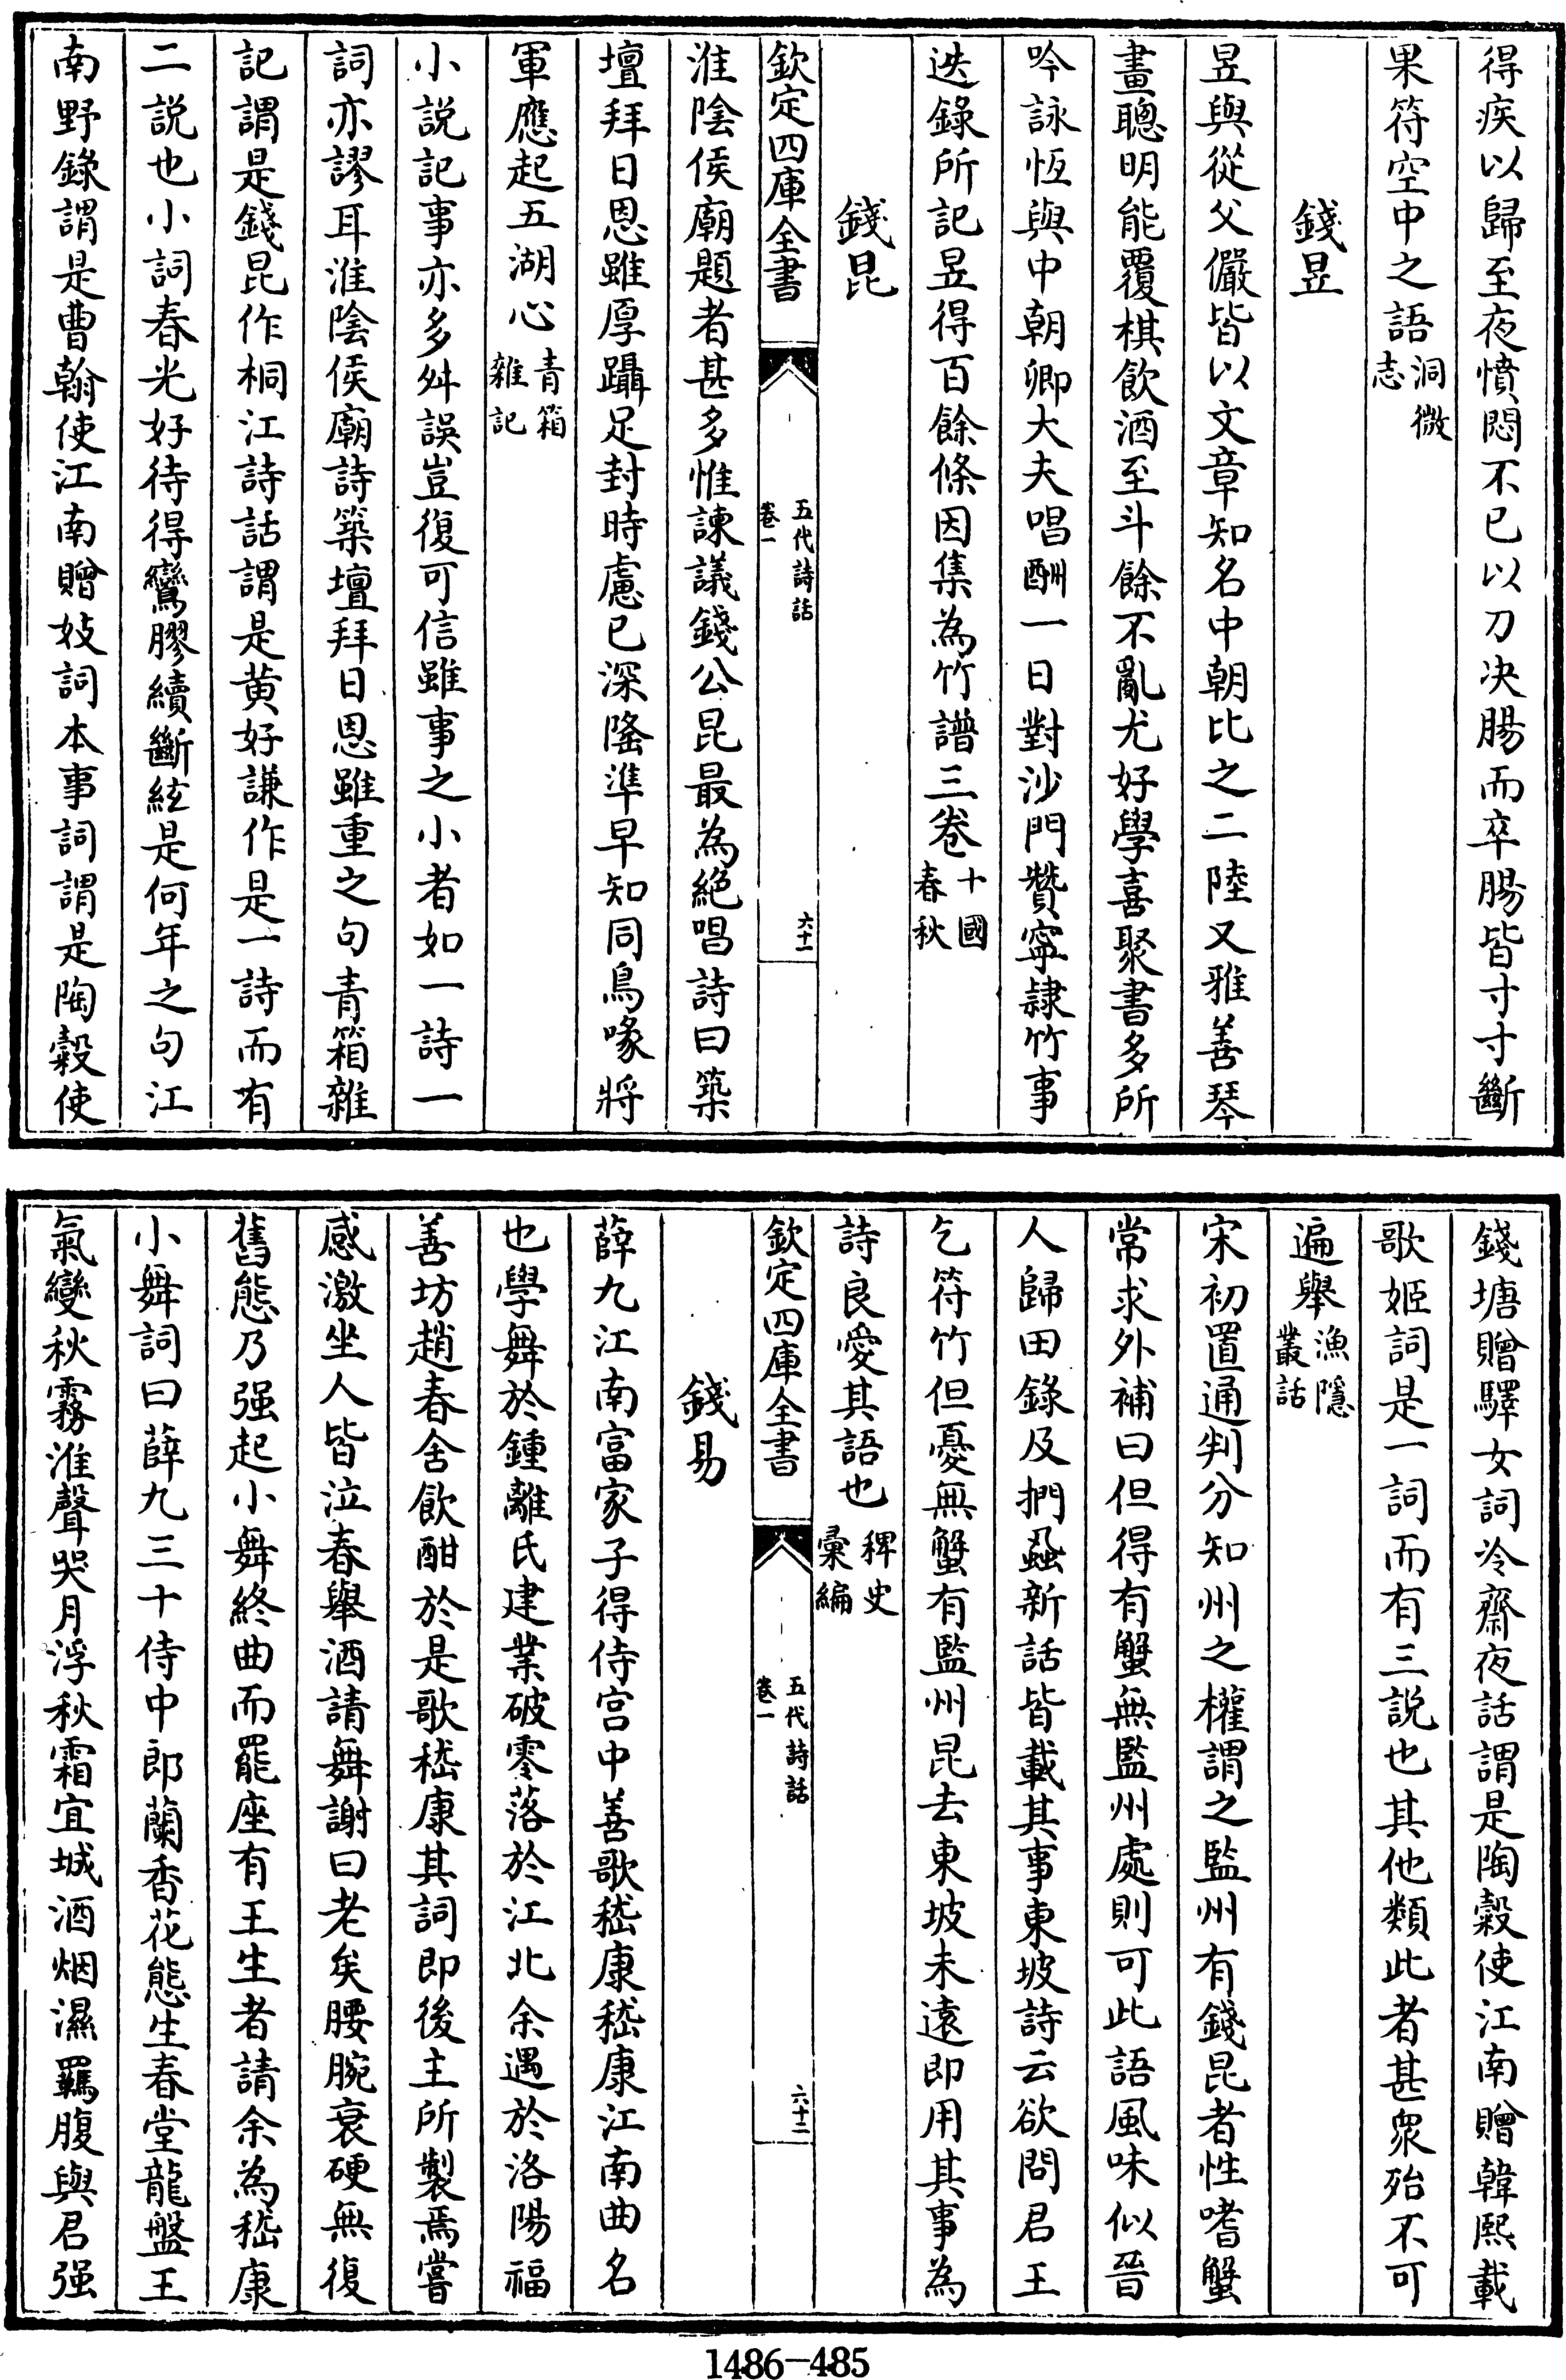 得疾以歸至夜憤悶不已以刀决腸而卒腸皆寸寸斷
果符空中之語洞微志
錢昱
昱與從父儼皆以文章知名中朝比之二陸又雅善琴
畫聰明能覆棋飲酒至斗餘不亂尤好學喜聚書多所
吟詠恆與中朝卿大夫唱酬一日對沙門贊寧隷竹事
迭錄所記昱得百餘條因集為竹譜三卷十國春秋
錢昆
欽定四庫全書
五代詩話
卷一
六十一
淮陰侯廟題者甚多惟諫議錢公昆最為絕唱詩曰築
壇拜日恩雖厚躡足封時慮已深隆準早知同鳥喙將
軍應起五湖心青箱雜記
小説記事亦多舛誤豈復可信雖事之小者如一詩一
詞亦謬耳淮陰侯廟詩築壇拜日恩雖重之句青箱雜
記謂是錢昆作桐江詩話謂是黄好謙作是一詩而有
二説也小詞春光好待得鸞膠續斷絃是何年之句江
南野錄謂是曹翰使江南贈妓詞本事詞謂是陶穀使
錢塘贈驛女詞冷齋夜話謂是陶穀使江南贈韓熙載
歌姬詞是一詞而有三説也其他類此者甚衆殆不可
遍舉漁隱叢話
宋初置通判分知州之權謂之監州有錢昆者性嗜蟹
常求外補曰但得有蟹無監州處則可此語風味似晉
人歸田錄及捫蝨新話皆載其事東坡詩云欲問君王
乞符竹但憂無蟹有監州昆去東坡未遠即用其事為
詩良愛其語也稗史彙編
欽定四庫全書
五代詩話
卷一
六十二
錢易
薛九江南富家子得侍宮中善歌嵇康嵇康江南曲名
也學舞於鍾離氏建業破零落於江北余遇於洛陽福
善坊趙春舍飲酣於是歌嵇康其詞即後主所製焉嘗
感激坐人皆泣春舉酒請舞謝曰老矣腰腕衰硬無復
舊態乃强起小舞終曲而罷座有王生者請余為嵇康
小舞詞曰薛九三十侍中郎蘭香花態生春堂龍盤王
氣變秋霧淮聲哭月浮秋霜宜城酒烟濕羈腹與君强
1486-485